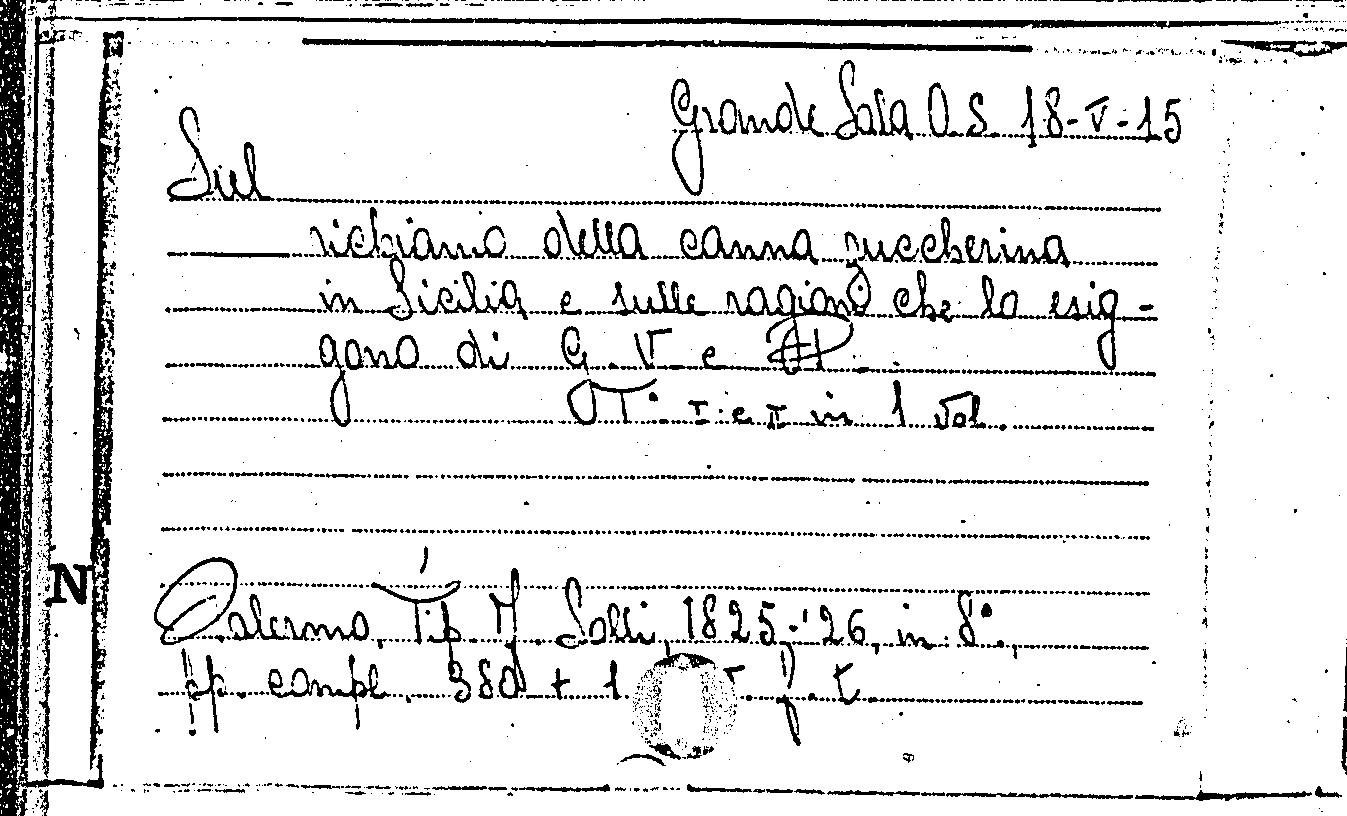 Grande Sala O.S. 18-V-15
Sul
richiamo della canna zuccherina
in Sicilia e sulle ragioni che lo esig-
gono di G. V. e P.
T.° I e II in 1 vol.
Palermo, Tip. F. Solli, 1825-'26, in 8°,
pp. compl. 380 + 1 f. t.
N